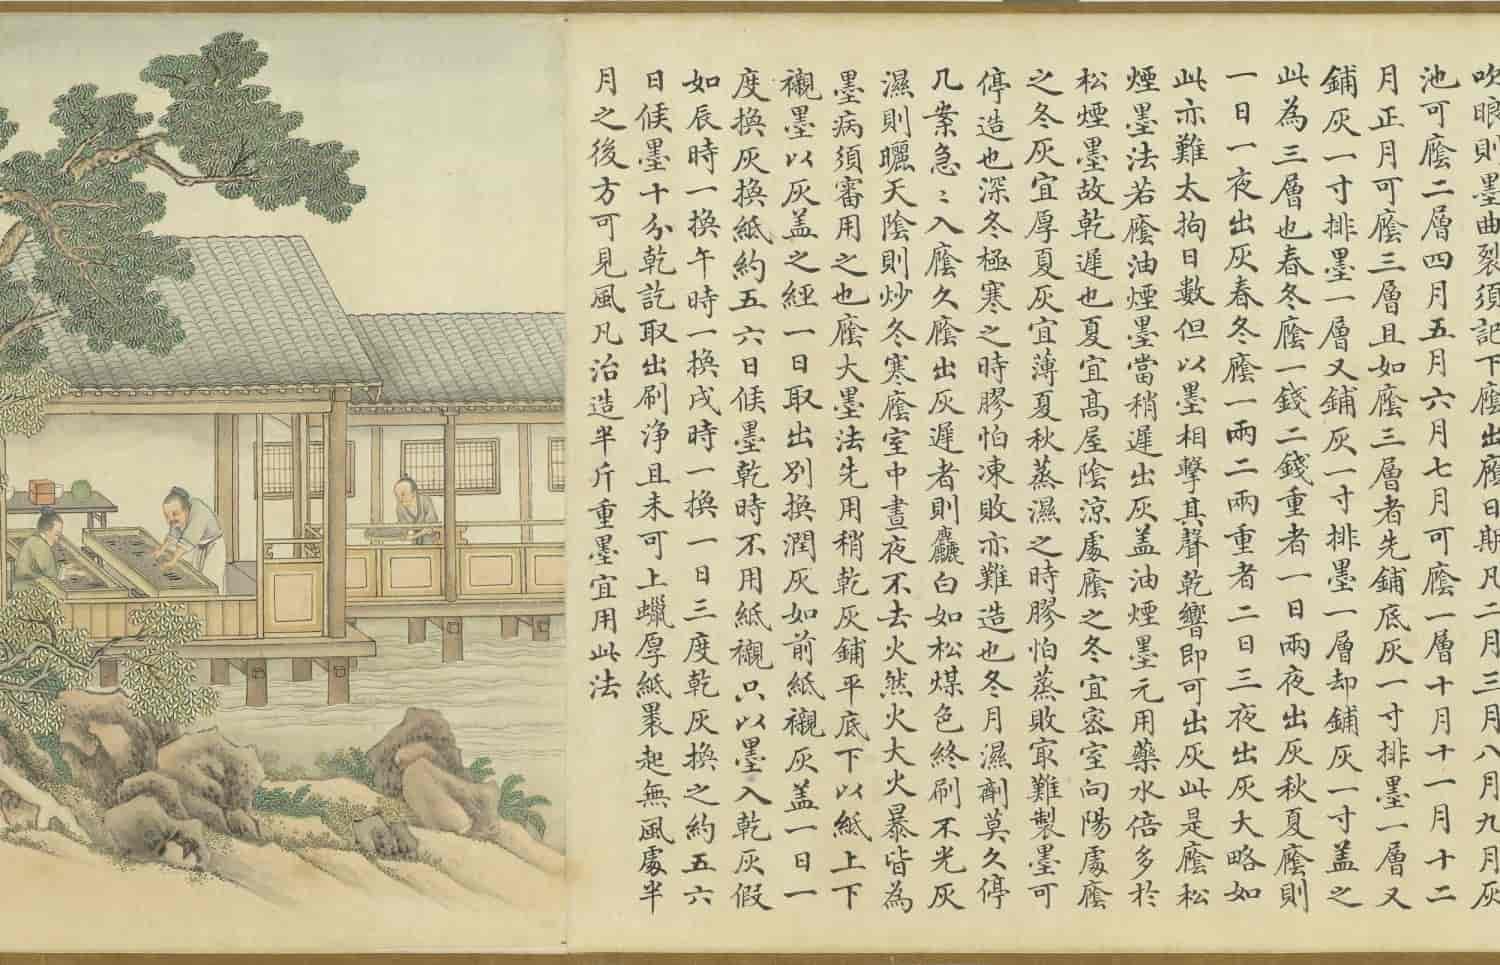 吹暾則墨曲裂須記下廕出廕日期凡二月三月八月九月灰
池可廕二層四月五月六月七月可廕一層十月十一月十二
月正月可廕三層且如廕三層者先鋪底灰一寸排墨一層又
鋪灰一寸排墨一層又鋪灰一寸排墨一層却鋪灰一寸盖之
此為三層也春冬廕一錢二錢重者一日兩夜出灰秋夏廕則
一日一夜出灰春冬廕一兩二兩重者二日三夜出灰大略如
此亦難太拘日數但以墨相擊其聲乾響即可出灰此是廕松
煙墨法若廕油煙墨當稍遲出灰盖油煙墨元用藥水倍多於
松煙墨故乾遲也夏宜高屋陰涼處廕之冬宜密室向陽處廕
之冬灰宜厚夏灰宜薄夏秋蒸濕之時膠怕蒸敗㝡難製墨可
停造也深冬極寒之時膠怕凍敗亦難造也冬月濕劑莫久停
几案急〻入廕久廕出灰遲者則麤白如松煤色終刷不光灰
濕則曬天陰則炒冬寒廕室中晝夜不去火然火大火暴皆為
墨病須審用之也廕大墨法先用稍乾灰鋪平底下以紙上下
襯墨以灰盖之經一日取出別換潤灰如前紙襯灰盖一日一
度換灰換紙約五六日候墨乾時不用紙襯只以墨入乾灰假
如辰時一換午時一換戌時一換一日三度乾灰換之約五六
日候墨十分乾訖取出刷淨且未可上蠟厚紙褁起無風處半
月之後方可見風凡治造半斤重墨宜用此法